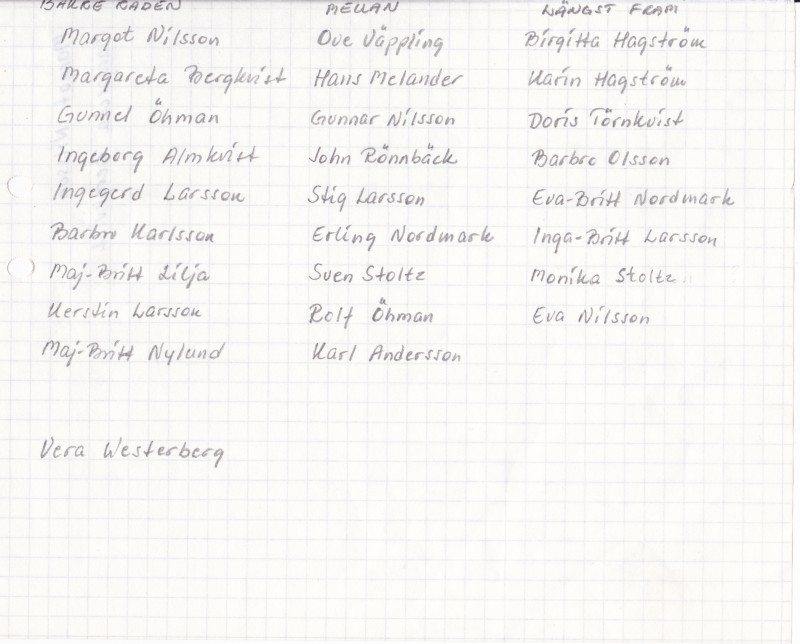 BAKRE RADEN MELLAN LÄNGST FRAM
Margot Nilsson Ove Väppling Birgitta Hagström
Margareta Bergkvist Hans Melander Karin Hagström
Gunnel Öhman Gunnar Nilsson Doris Törnkvist
Ingeborg Almkvist John Rönnbäck Barbro Olsson
Ingegerd Larsson Stig Larsson Eva-Britt Nordmark
Barbro Karlsson Erling Nordmark Inga-Britt Larsson
Maj-Britt Lilja Sven Stoltz Monika Stoltz
Kerstin Larsson Rolf Öhman Eva Nilsson
Maj-Britt Nylund Karl Andersson
Vera Westerberg